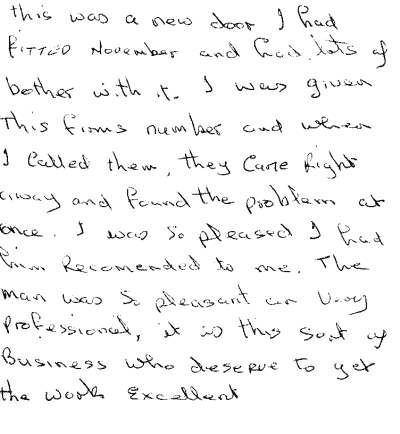 this was a new door I had
fitted November and had lots of
bother with it. I was given
This firms number and when
I called them, they came right
away and found the problem at
once. I was so pleased I had
him Recomended to me. The
man was so pleasant an very
professional, it is this sort of
Business who deserve to get
the work Excellent